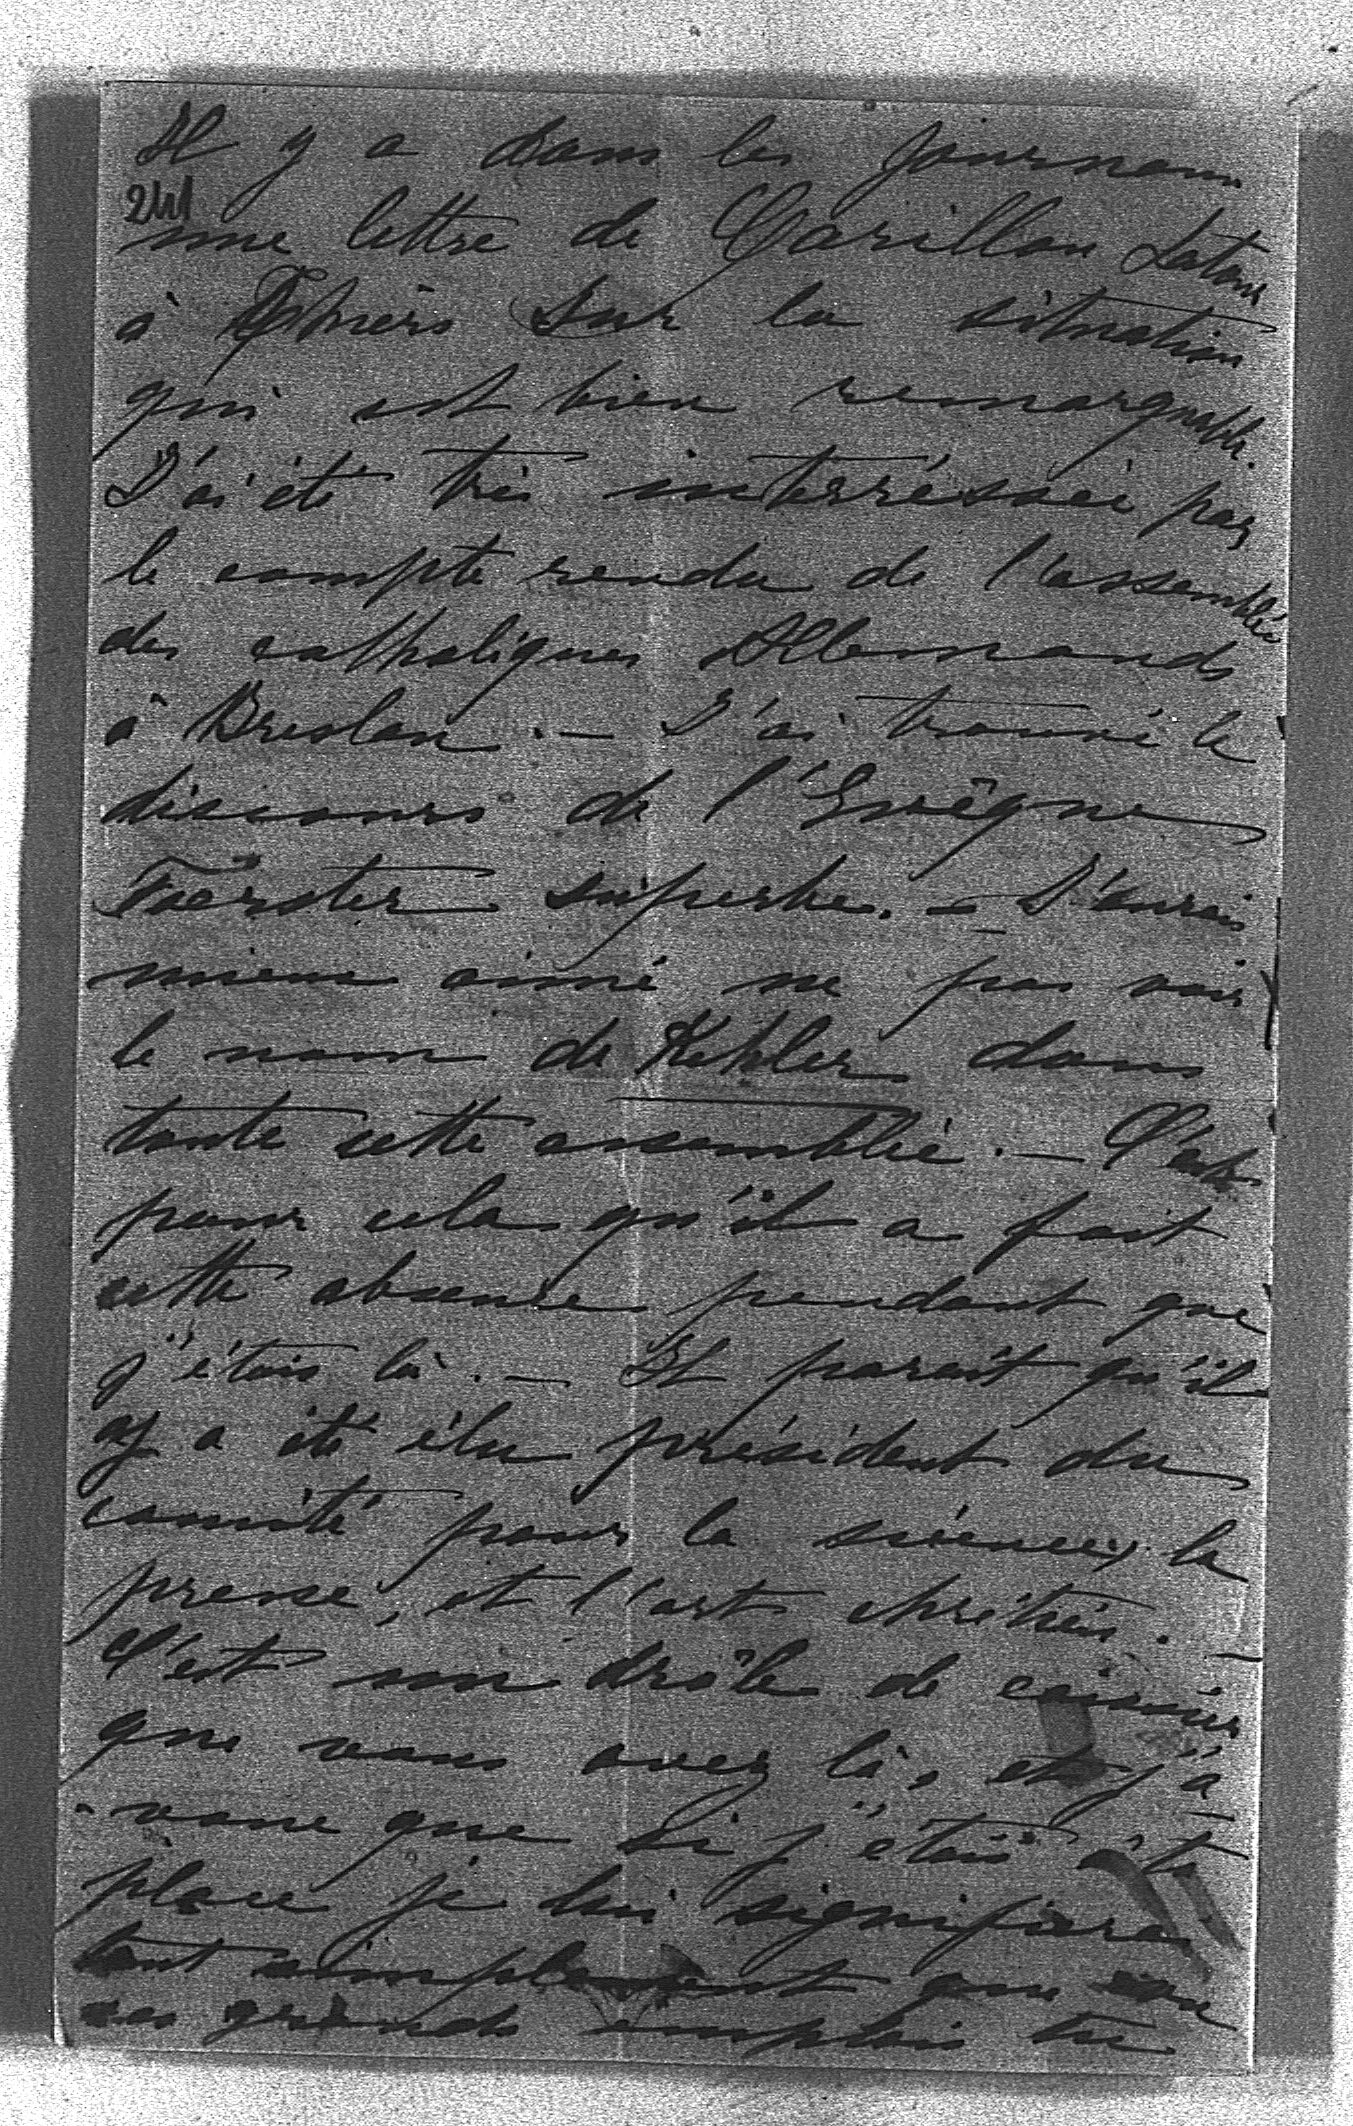 Il y a dans les journaux
241
une lettre de Carillon Latour
à Thiers sur la situation
qui est bien remarquable.
J'ai été très intérréssée par
le compte rendu de l'assemblée
des catholiques Allemands
à Breslau. — J'ai trouvé le
discours de l'Evêque
Foerster superbe. — J'aurais
mieux aimé ne pas voir
le nom de Kehler dans
toute cette assemblée. — C'est
pour cela qu'il a fait
cette absence pendant que
j'étais là. — Il parait qu'il
y a été élu président du
comité pour la science, la
presse, et l'art chrétien. —
C'est un drôle de caissier
que vous avez là, et j'a-
-voue que si j'étais à ta
place je lui signifierai
tout simplement que
ses grands emplois tu